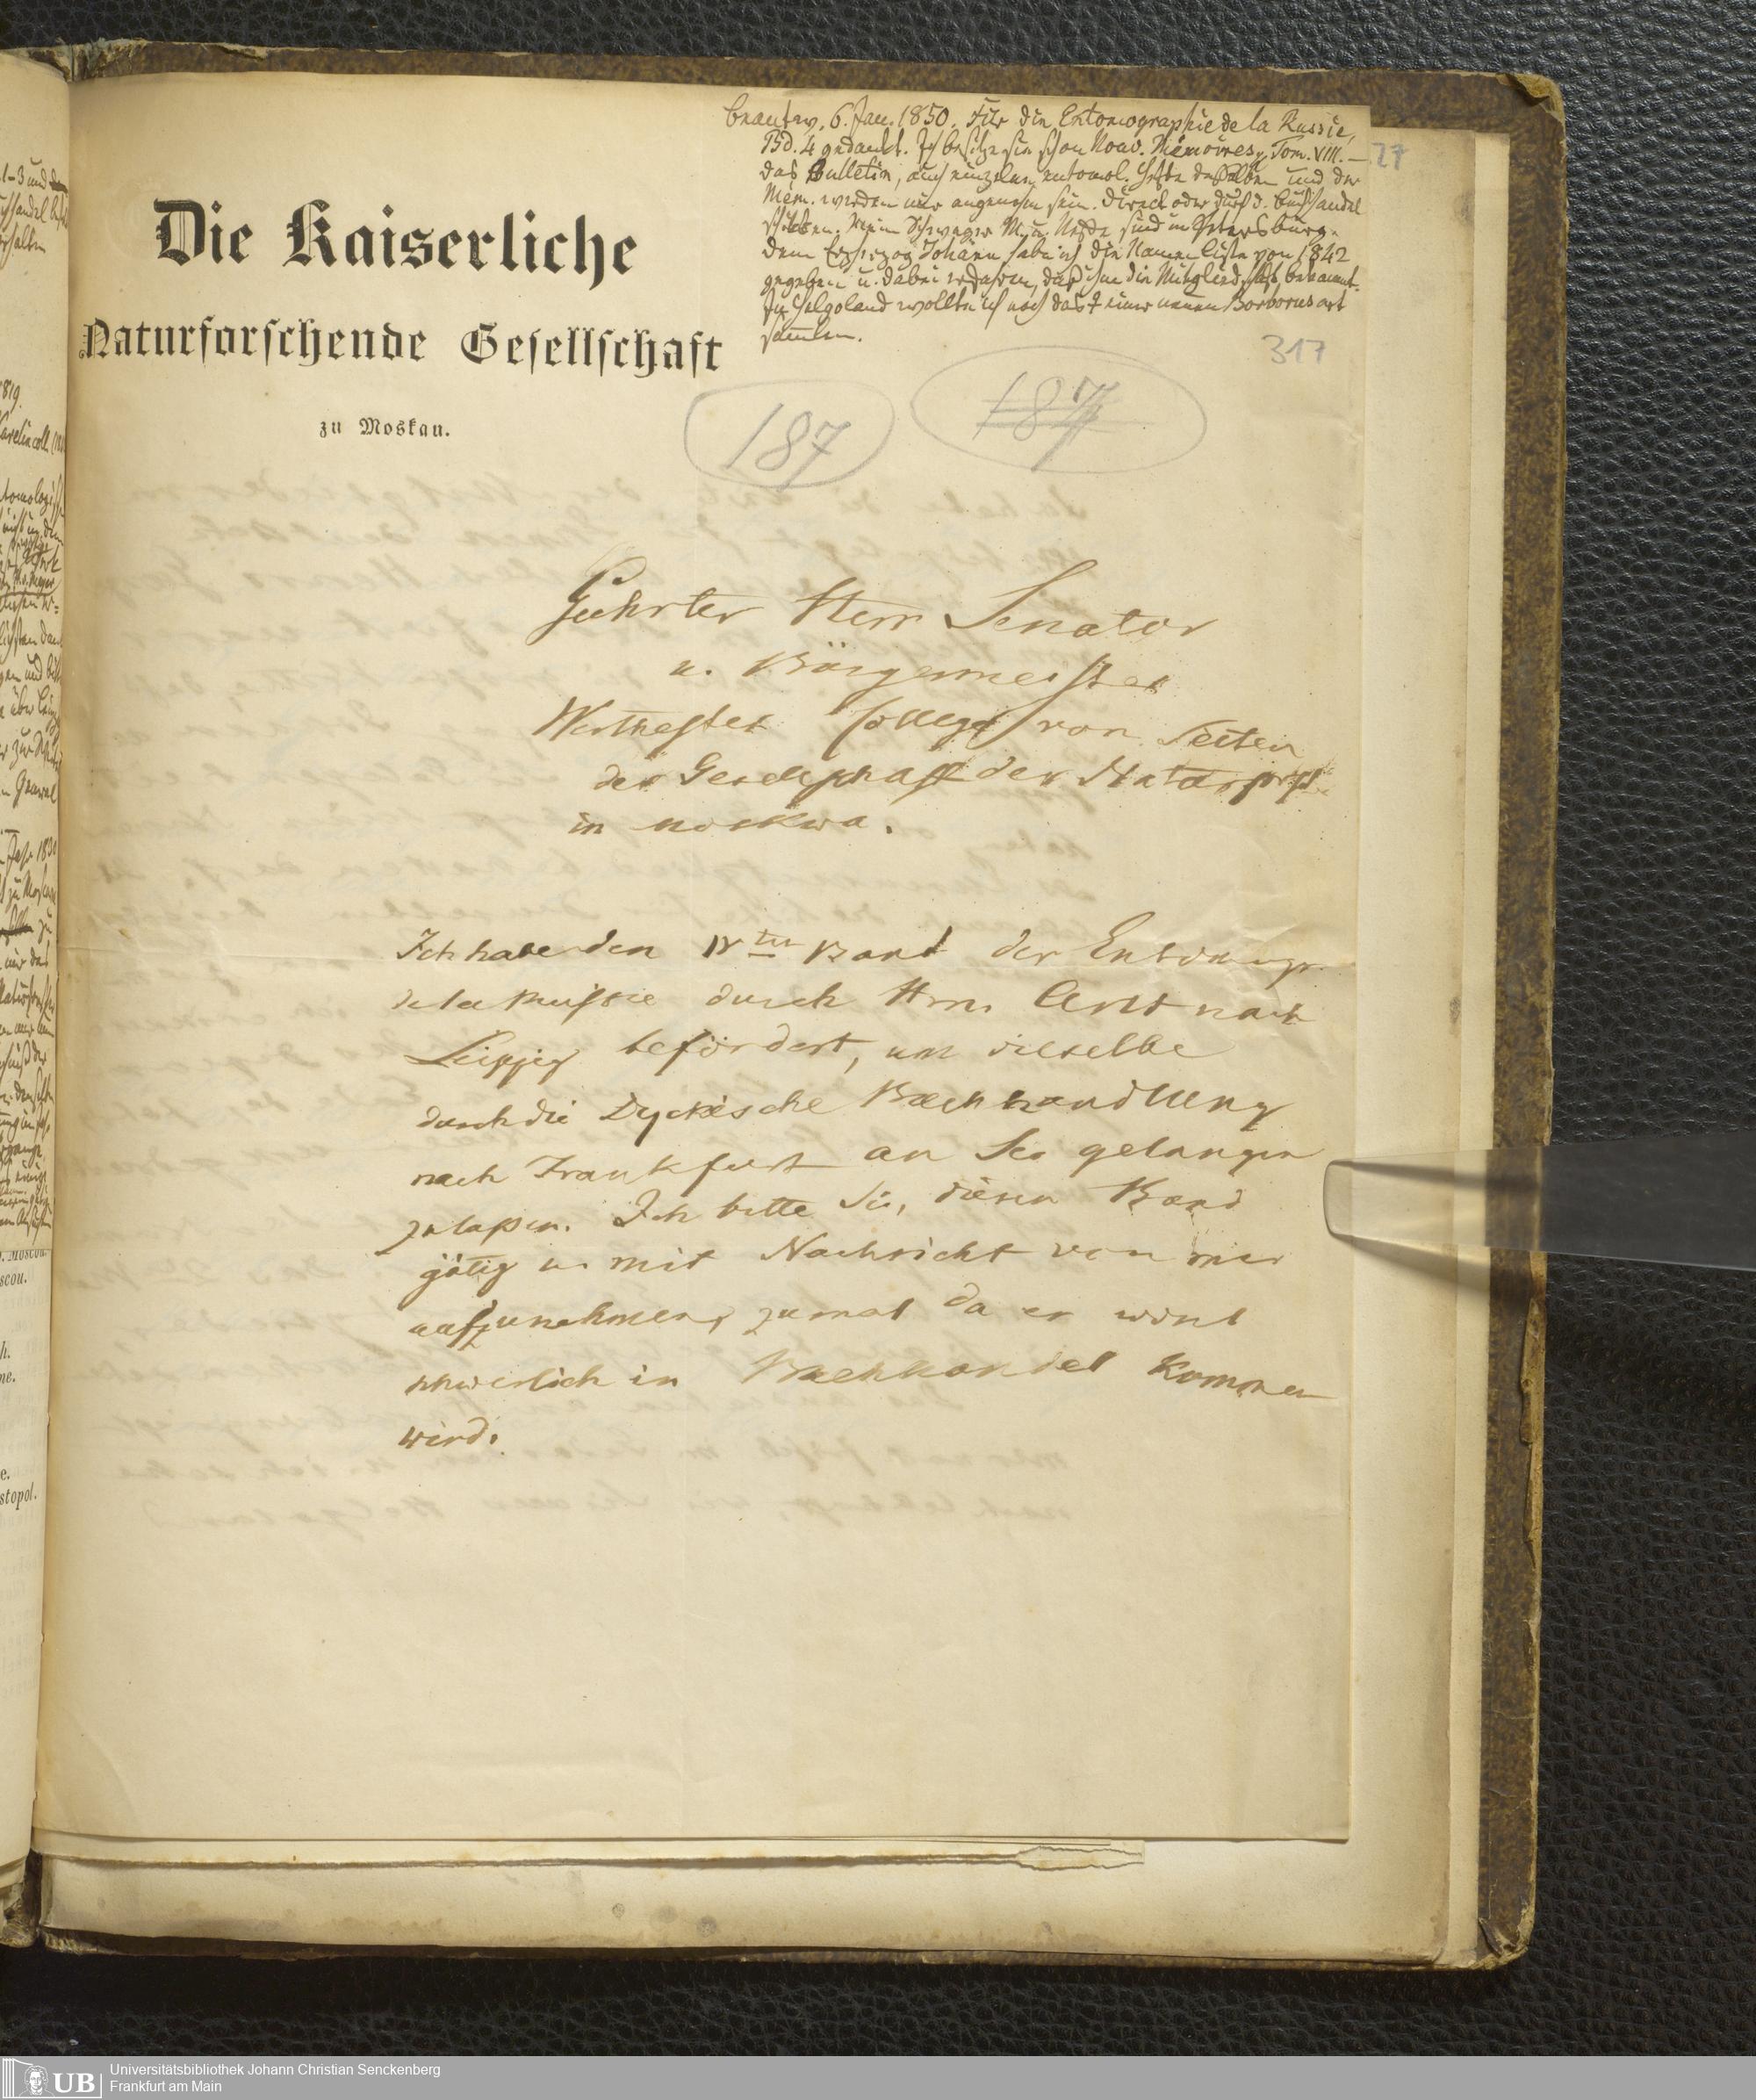 Beantw. 6. Jan. 1850. Für die Entomographie de la Russie,
Bd. 4 gedankt. Ich besitze sie schon Nouv. Mémoires, Tom. VIII. —
das Bulletin, auch einzelne entomol. Hefte desselben und der
Mém. werden mir angenehm sein. Direct oder durch d. Buchhandel
schicken. Mein Schwager u. Neffe sind in Petersburg.
Dem Erzherzog Johann habe ich die Namen Liste von 1842
gegeben u. dabei erfahren, daß ihm die Mitgliedschaft bekannt.
In Helgoland wollte ich noch das einer neuen Borborus art
sammeln.
27
317
Die Kaiserliche
Naturforschende Gesellschaft
zu Moskau.
187
187
Geehrter Herr Senator
u. Bürgermeister
Werthester College von Seiten
der Gesellschaft der Naturforsch
in Moskwa.
Ich habe den IVten Band der Entomogr.
de la Russie durch Hrn. Arlt nach
Leipzig befördert, um dieselbe
durch die Dycksche Buchhandlung
nach Frankfurt an Sie gelangen
zu laßen. Ich bitte Sie, diesen Band
gütig u. mit Nachsicht von mir
aufzunehmen, zumal da er wohl
schwerlich in Buchhandel kommen
wird.
UB
Universitätsbibliothek Johann Christian Senckenberg
Frankfurt am Main